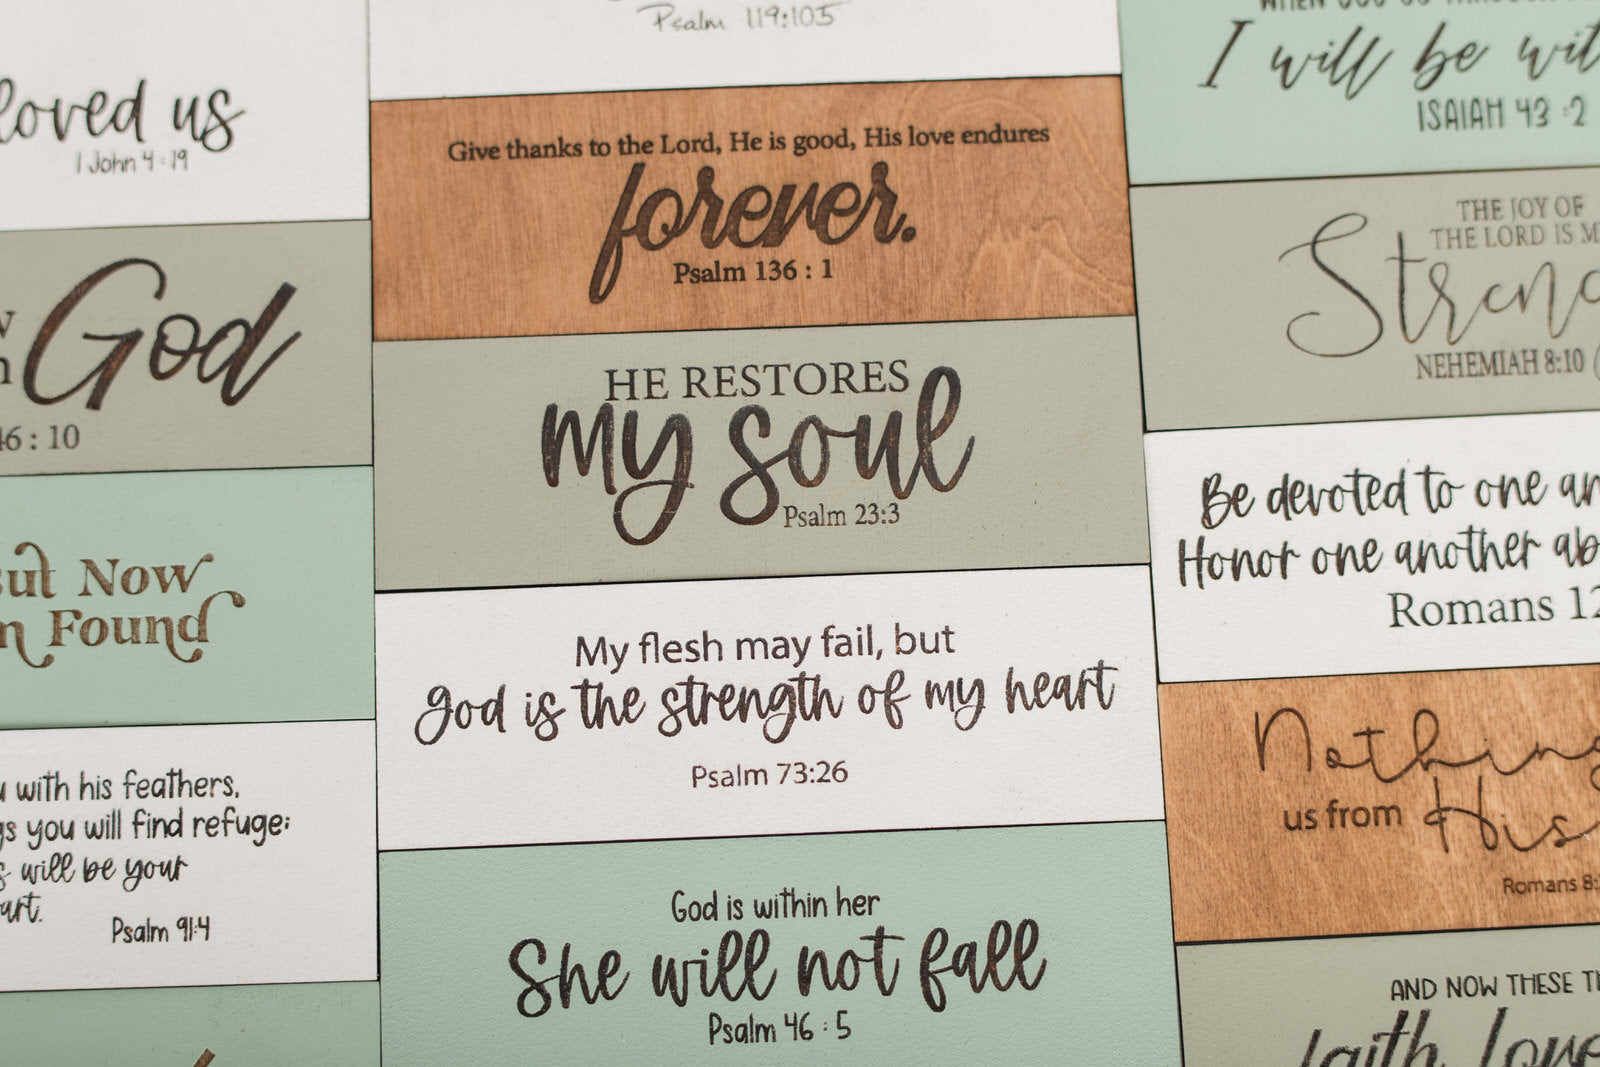 loved us
1 John 4:19
God
46 : 10
But Now
Found
with his feathers,
you will find refuge;
will be your
Psalm 91:4
Psalm 119:105
Give thanks to the Lord, He is good, His love endures
forever.
Psalm 136 : 1
HE RESTORES
my soul
Psalm 23:3
My flesh may fail, but
god is the strength of my heart
Psalm 73:26
God is within her
She will not fall
Psalm 46 : 5
I will be
ISAIAH 43 :2
THE JOY OF
THE LORD IS
NEHEMIAH 8:10
Be devoted to one
Honor one another
Romans 12
Nothing
us from His
Romans 8:
AND NOW THESE
faith love